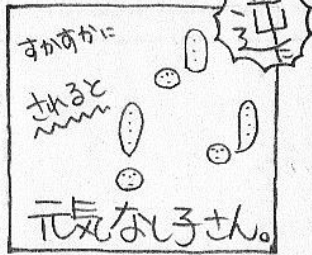 すかすかに
されると
元気なし子さん。